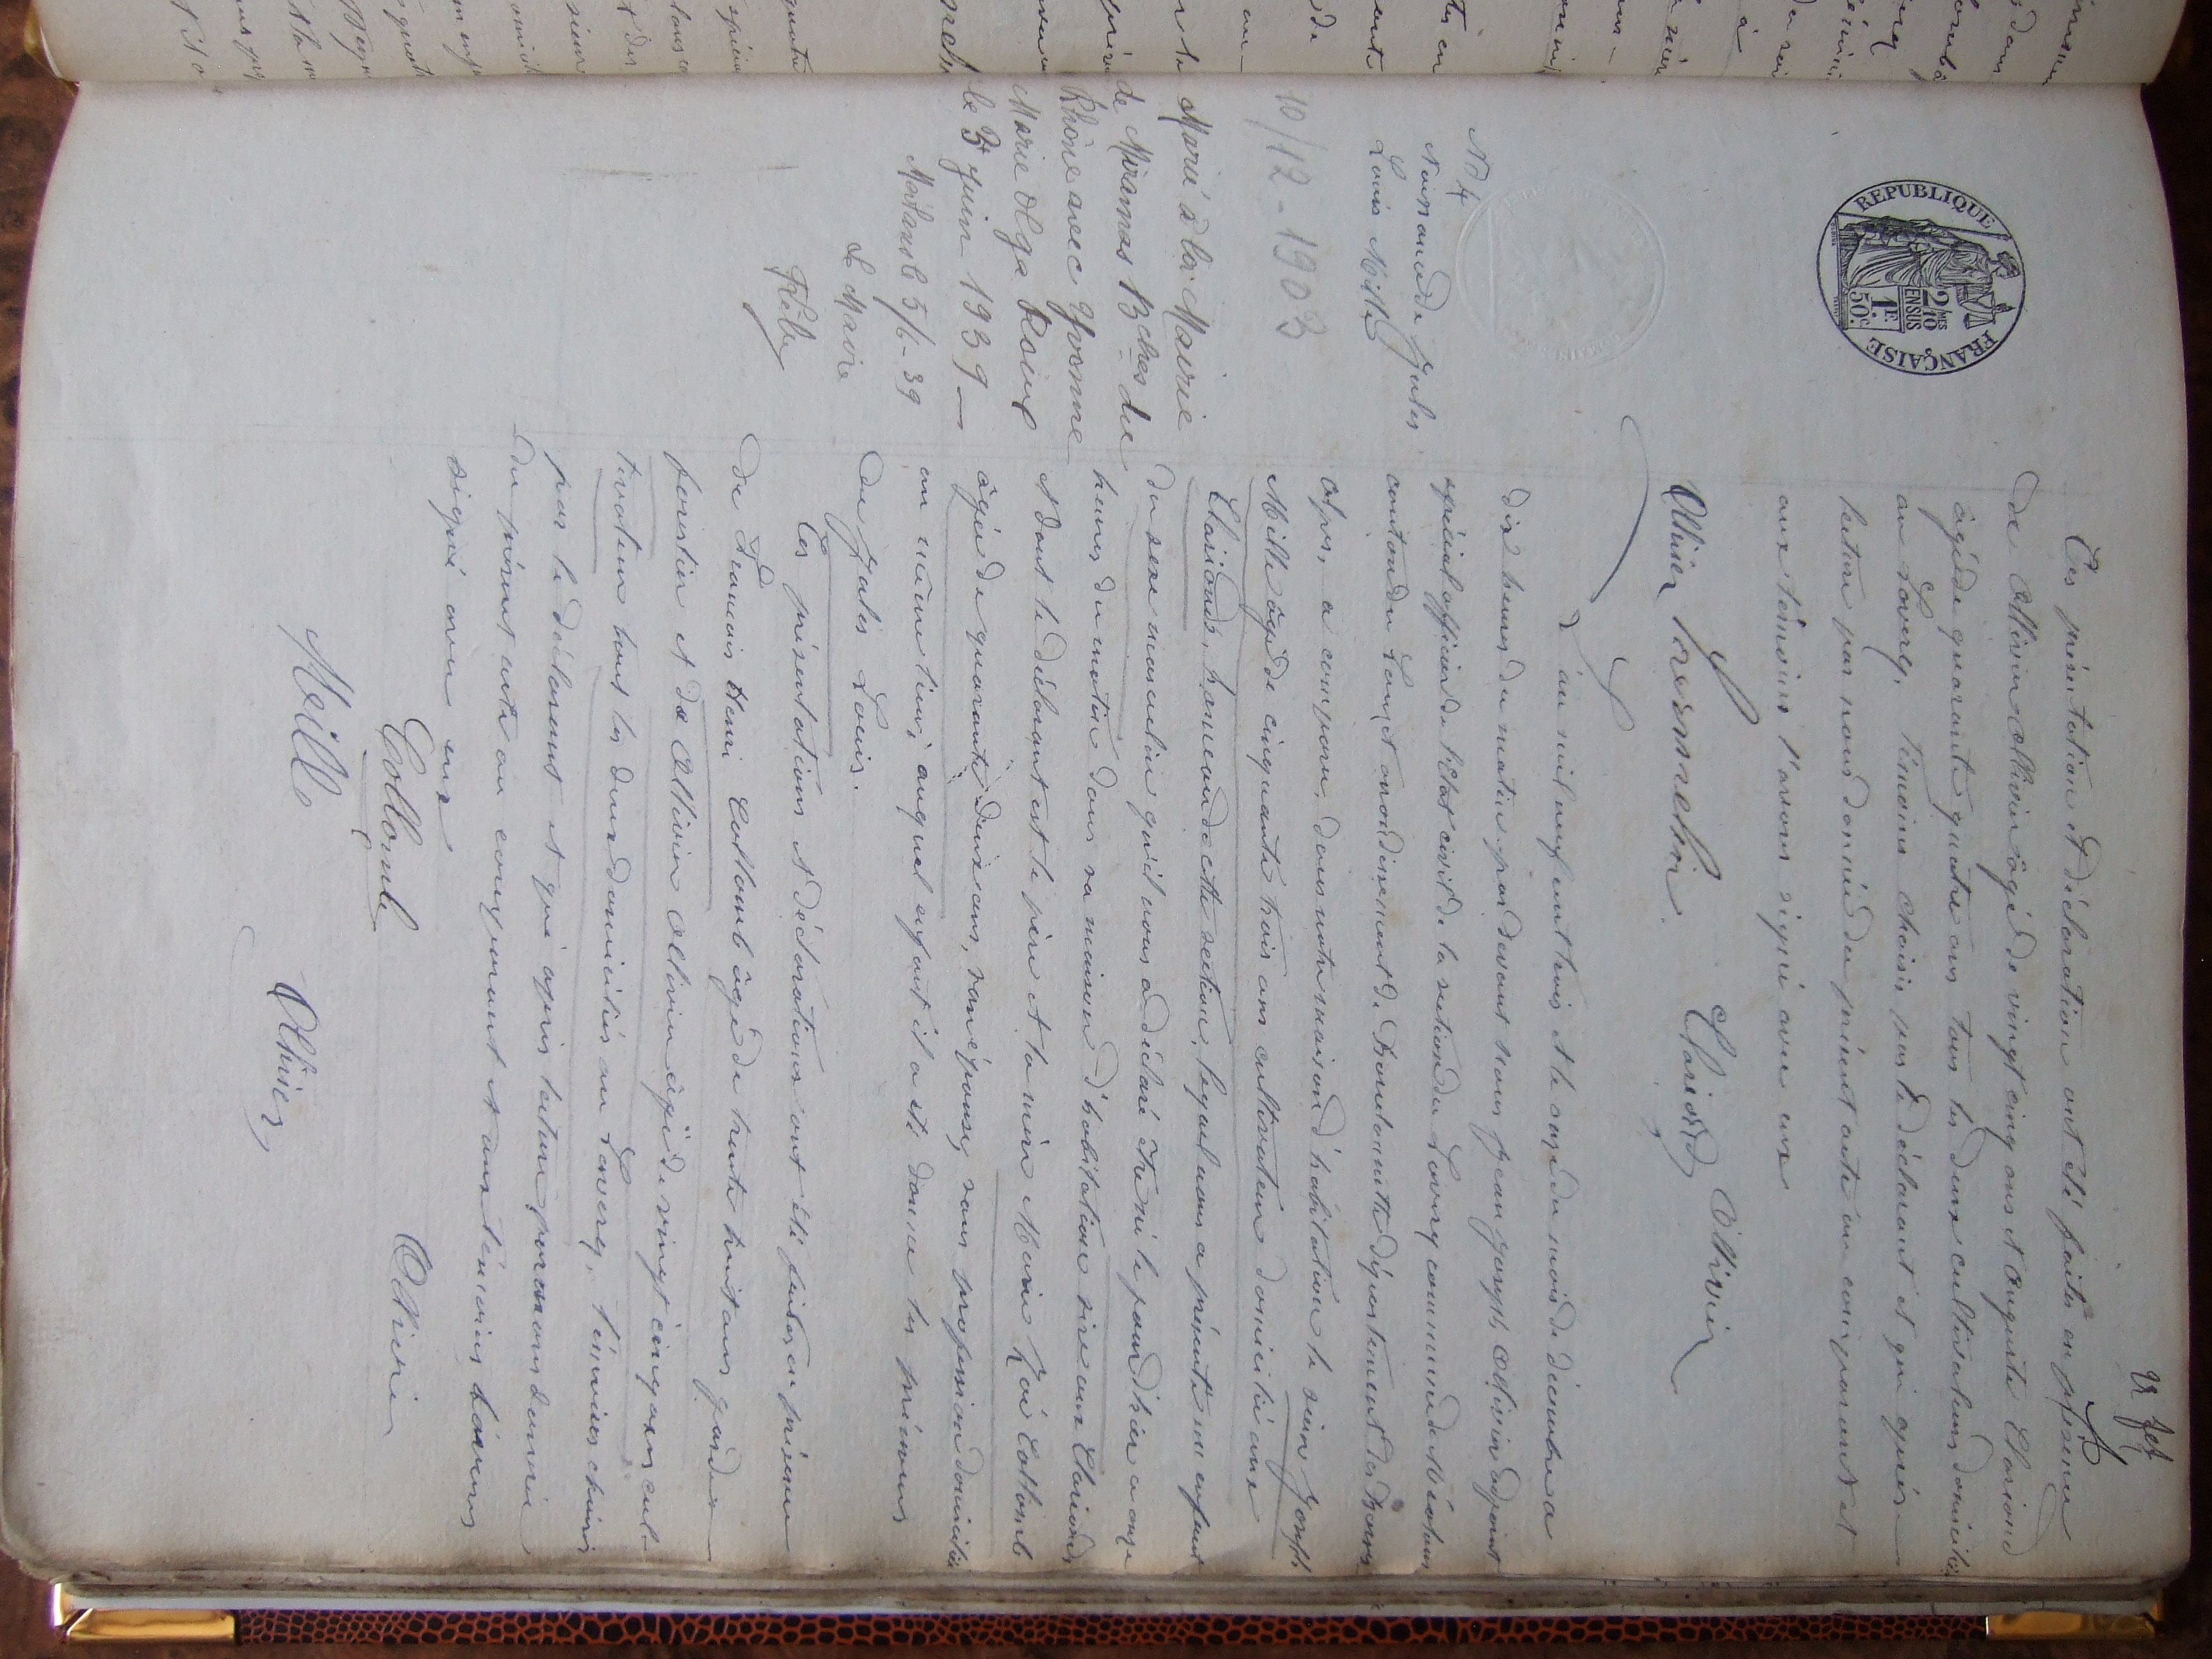 vr fet
Ces présentation et déclaration ont été faites en présence
de Ollivier Ollivier âgé de vingt cinq ans et Auguste Clariond
âgé de quarante quatre ans tous les deux cultivateurs domiciliés
au Laverq, témoins choisis par le déclarant et qui après
lecture par nous donnée du présent acte au comparant et
aux témoins l'avons signé avec eux
Clariond Ollivier
REPUBLIQUE FRANÇAISE
2/10 MES
EN SUS
1F.
50c.
No 4
Naissance de Jules
Louis Mille
10/12-1903
Marié à la Mairie
de Miramas Bches du
Rhône avec Yvonne
Marie Olga Roux
le 3 Juin 1939 —
Méolans le 5/6-39
Le Maire
L'an mil neuf cent trois et le onze du mois de décembre a
dix heures du matin, par devant nous Jean Joseph Ollivier adjoint
spécial officier de l'état civil de la section du Laverq commune de Méolans
canton du Lauzet arrondissement de Barcelonnette département des Basses
Alpes, a comparu, dans notre maison d'habitation le sieur Joseph
Mille âgé de cinquante trois ans cultivateur domicilié aux
Clarionds, hameau de cette section, lequel nous a présenté un enfant
du sexe masculin qu'il nous a déclaré être né le jour d'hier a onze
heures du matin dans sa maison d'habitation sise aux Clarionds
et dont le déclarant est le père et la mère Marie Zoé Collomb
âgée de quarante deux ans, son épouse, sans profession domiciliée
au même lieu, auquel enfant il a été donné les prénoms
de Jules Louis.
Ces présentations et déclarations ont été faites en présence
de François Henri Collomb âgé de trente huit ans garde
forestier et de Ollivier Ollivier âgé de vingt cinq ans cul-
tivateur tous les deux domiciliés au Laverq, témoins choisis
par le déclarant et qui après lecture par nous donnée
du présent acte au comparant et aux témoins l'avons
signé avec eux
Collomb Ollivier
Mille Ollivier